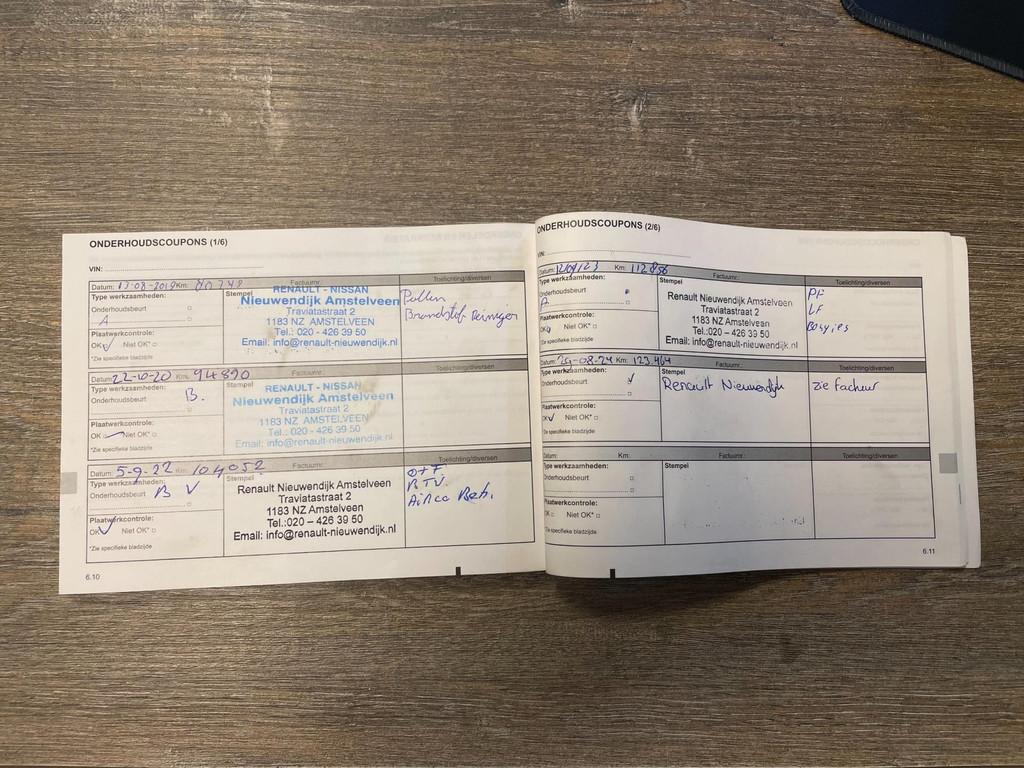 ONDERHOUDSCOUPONS (1/6)
VIN:
Datum: 17-08-2019 Km: Factuurnr:
Toelichting/diversen
Type werkzaamheden:
Onderhoudsbeurt
A
Plaatwerkcontrole:
OK Niet OK*
*Zie specifieke bladzijde
Stempel
RENAULT - NISSAN
Nieuwendijk Amstelveen
Traviatastraat 2
1183 NZ AMSTELVEEN
Tel.: 020 - 426 39 50
Email: info@renault-nieuwendijk.nl
Pollen
Brandstof Reiniger
Datum: 22-10-20 Km: 94890 Factuurnr:
Toelichting/diversen
Type werkzaamheden:
Onderhoudsbeurt B.
Plaatwerkcontrole:
OK Niet OK*
*Zie specifieke bladzijde
Stempel
RENAULT - NISSAN
Nieuwendijk Amstelveen
Traviatastraat 2
1183 NZ AMSTELVEEN
Tel.: 020 - 426 39 50
Email: info@renault-nieuwendijk.nl
Datum: 5-9-22 Km: 104052 Factuurnr:
Toelichting/diversen
Type werkzaamheden:
Onderhoudsbeurt B
Plaatwerkcontrole:
OK Niet OK*
*Zie specifieke bladzijde
Stempel
Renault Nieuwendijk Amstelveen
Traviatastraat 2
1183 NZ Amstelveen
Tel.:020 – 426 39 50
Email: info@renault-nieuwendijk.nl
O+F
BTV.
Airco Beh.
6.10
ONDERHOUDSCOUPONS (2/6)
VIN:
Datum: 12/09/23 Km: 112856 Factuurnr:
Toelichting/diversen
Type werkzaamheden:
Onderhoudsbeurt
A
Plaatwerkcontrole:
OK Niet OK*
*Zie specifieke bladzijde
Stempel
Renault Nieuwendijk Amstelveen
Traviatastraat 2
1183 NZ Amstelveen
Tel.:020 – 426 39 50
Email: info@renault-nieuwendijk.nl
PF
LF
Bougies
Datum: 29-08-24 Km: 123.464 Factuurnr:
Toelichting/diversen
Type werkzaamheden:
Onderhoudsbeurt
Plaatwerkcontrole:
OK Niet OK*
*Zie specifieke bladzijde
Stempel
Renault Nieuwendijk
zie factuur
Datum: Km: Factuurnr:
Toelichting/diversen
Type werkzaamheden:
Onderhoudsbeurt
Plaatwerkcontrole:
OK Niet OK*
*Zie specifieke bladzijde
Stempel
6.11